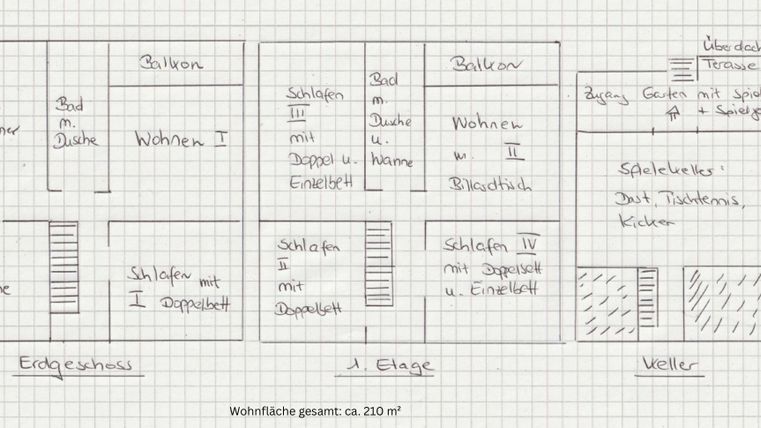 Balkon
Bad
m.
Dusche
Wohnen I
Schlafen mit
I Doppelbett
Erdgeschoss
Schlafen
III
mit
Doppel u.
Einzelbett
Bad
m.
Dusche
u.
Wanne
Balkon
Wohnen
m. II
Billardtisch
Schlafen
II
mit
Doppelbett
Schlafen IV
mit Doppelbett
u. Einzelbett
1. Etage
Überdach
Terasse
Zugang Garten mit Spiel
+ Spielge
Spielekeller:
Dart, Tischtennis,
Kicker
Keller
Wohnfläche gesamt: ca. 210 m²